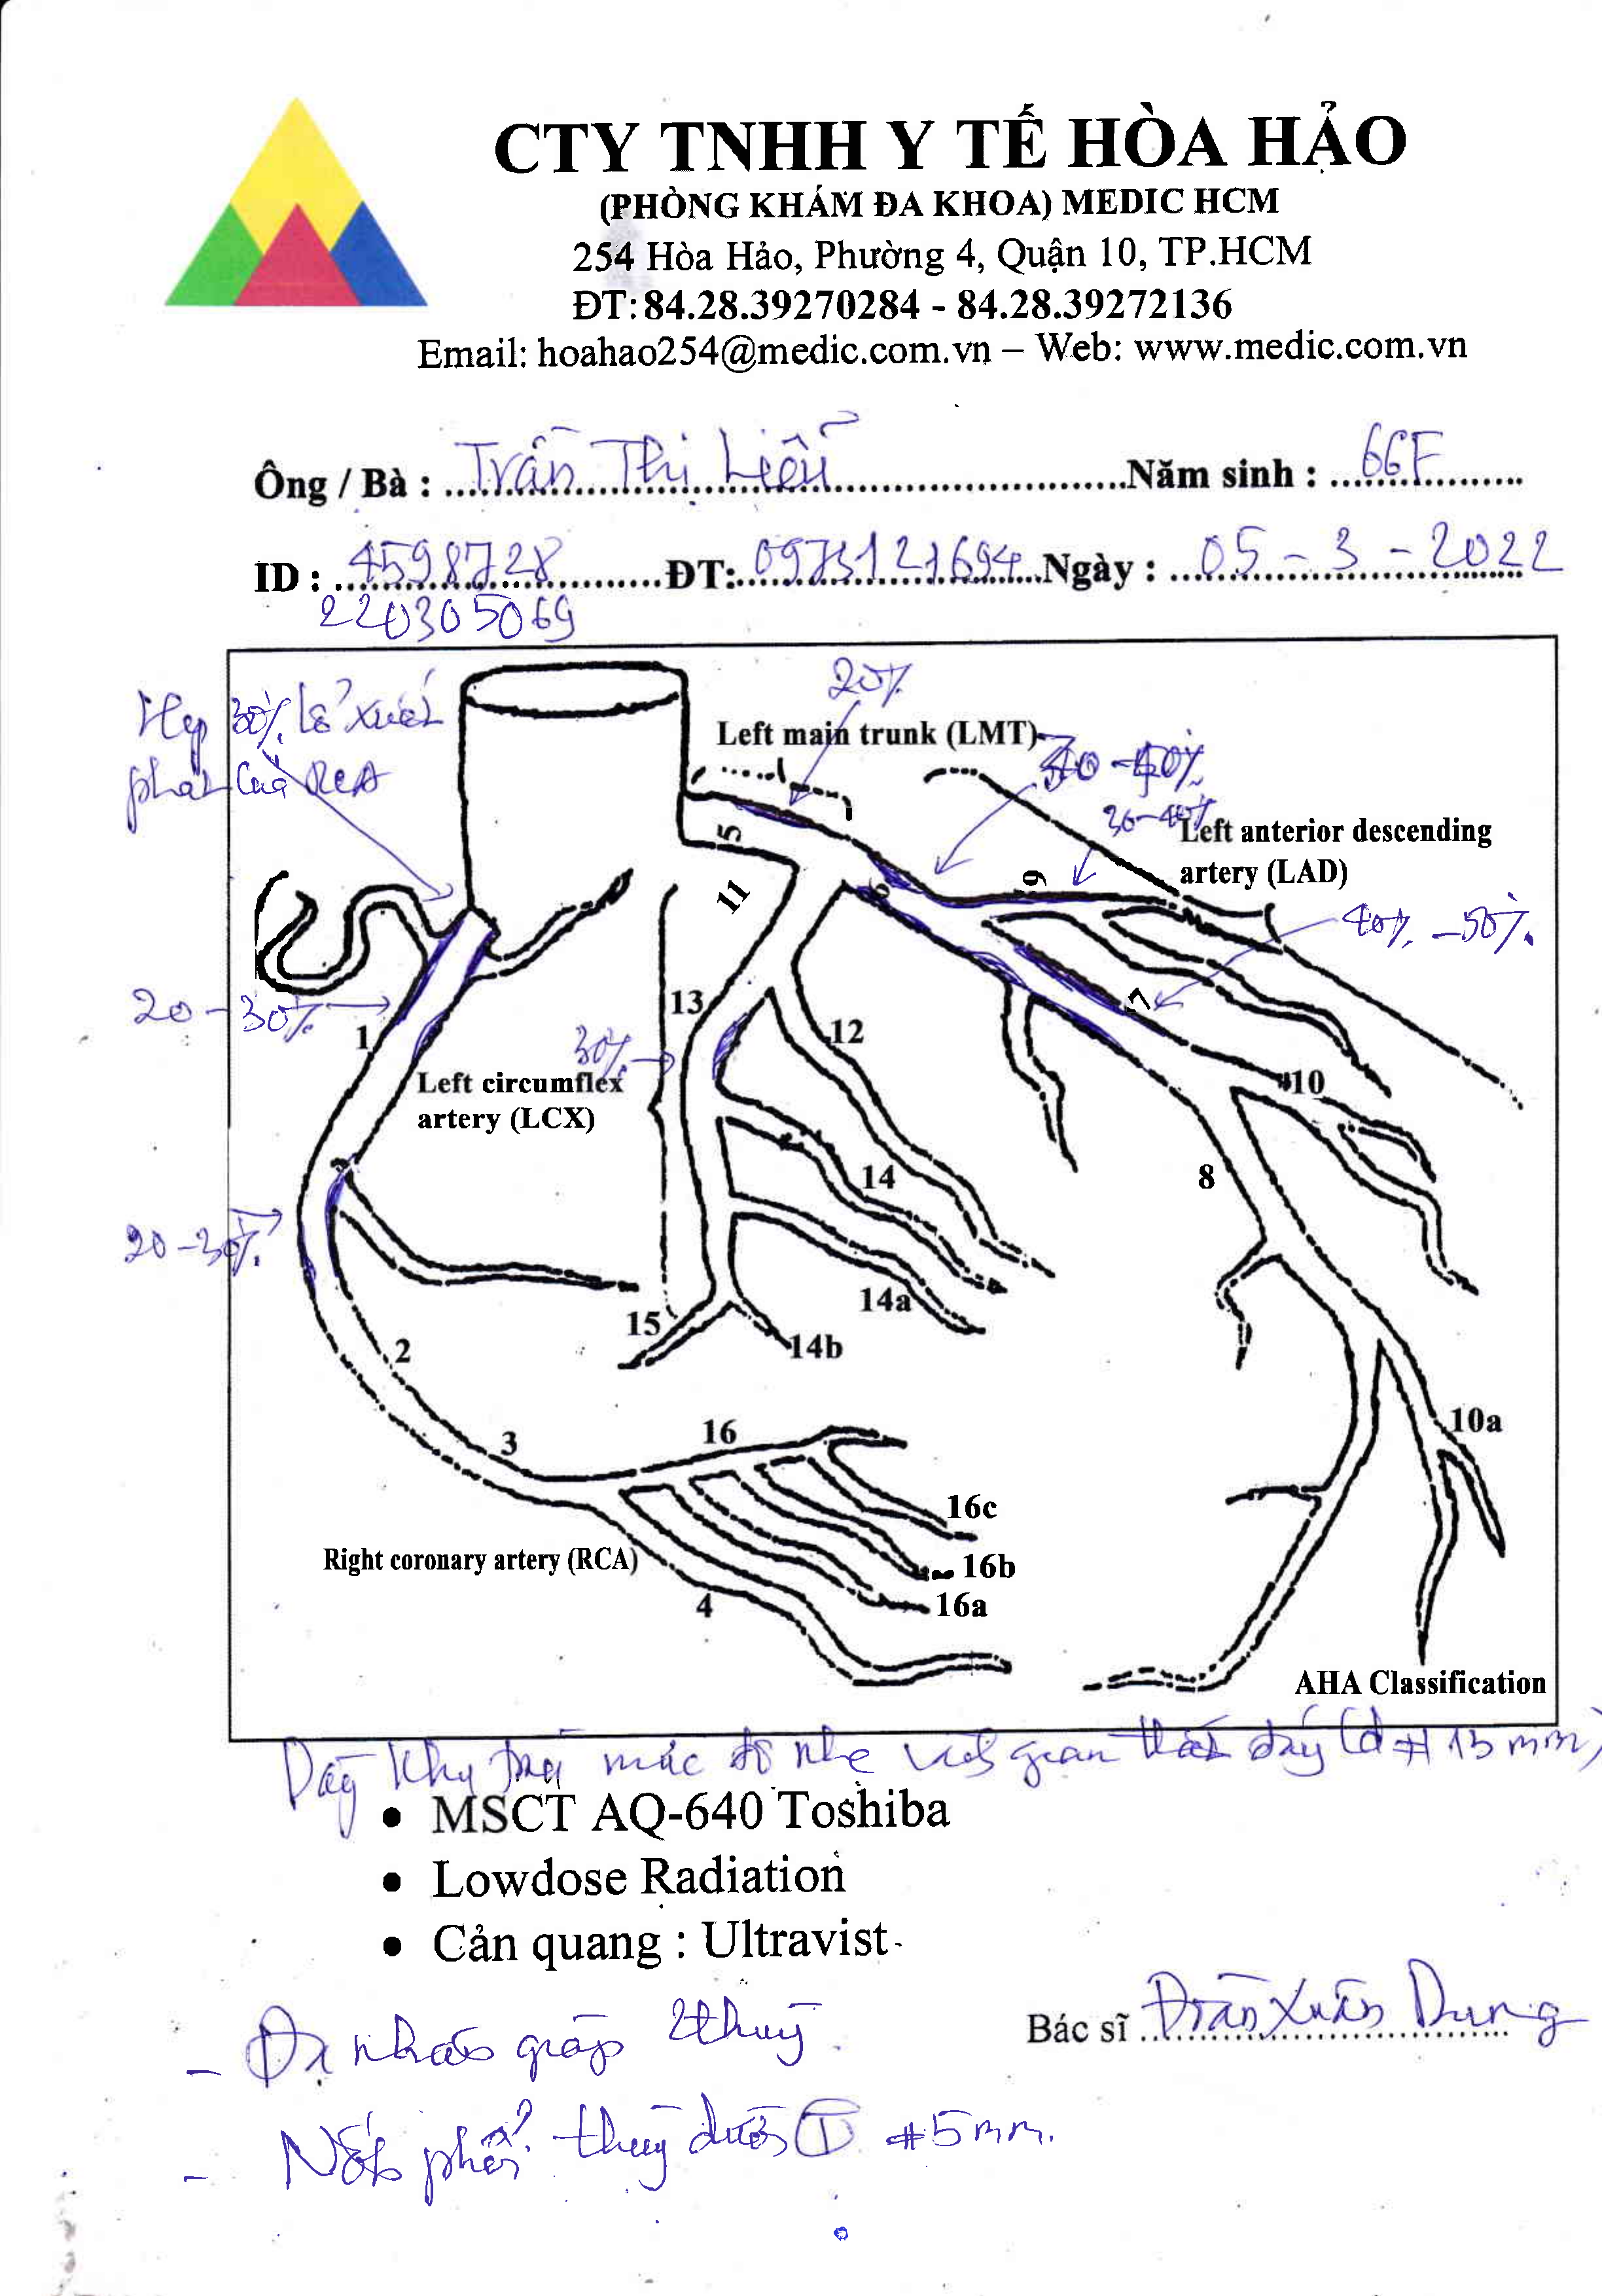 CTY TNHH Y TẾ HÒA HẢO
(PHÒNG KHÁM ĐA KHOA) MEDIC HCM
254 Hòa Hảo, Phường 4, Quận 10, TP.HCM
ĐT: 84.28.39270284 - 84.28.39272136
Email: hoahao254@medic.com.vn – Web: www.medic.com.vn
Ông / Bà : Trần Thị Liễu Năm sinh : 66F
ID : 4598728 ĐT: 0973121694 Ngày : 05 - 3 - 2022
220305069
Hẹp 30% lỗ xuất
phát của RCA
20%
Left main trunk (LMT)
30-40%
Left anterior descending
artery (LAD)
40% - 50%
5
6
9
11
7
20-30%
1
13
12
30%
Left circumflex
artery (LCX)
10
8
14
20-30%
14a
15
14b
2
3
16
10a
16c
Right coronary artery (RCA)
16b
16a
4
AHA Classification
Dày khu trú mức độ nhẹ vách gian thất đáy (d # 13 mm)
• MSCT AQ-640 Toshiba
• Lowdose Radiation
• Cản quang : Ultravist
Bác sĩ Xuân Dung
- Đa nhân giáp 2 thùy.
- Nốt phổi thùy dưới T # 5 mm.